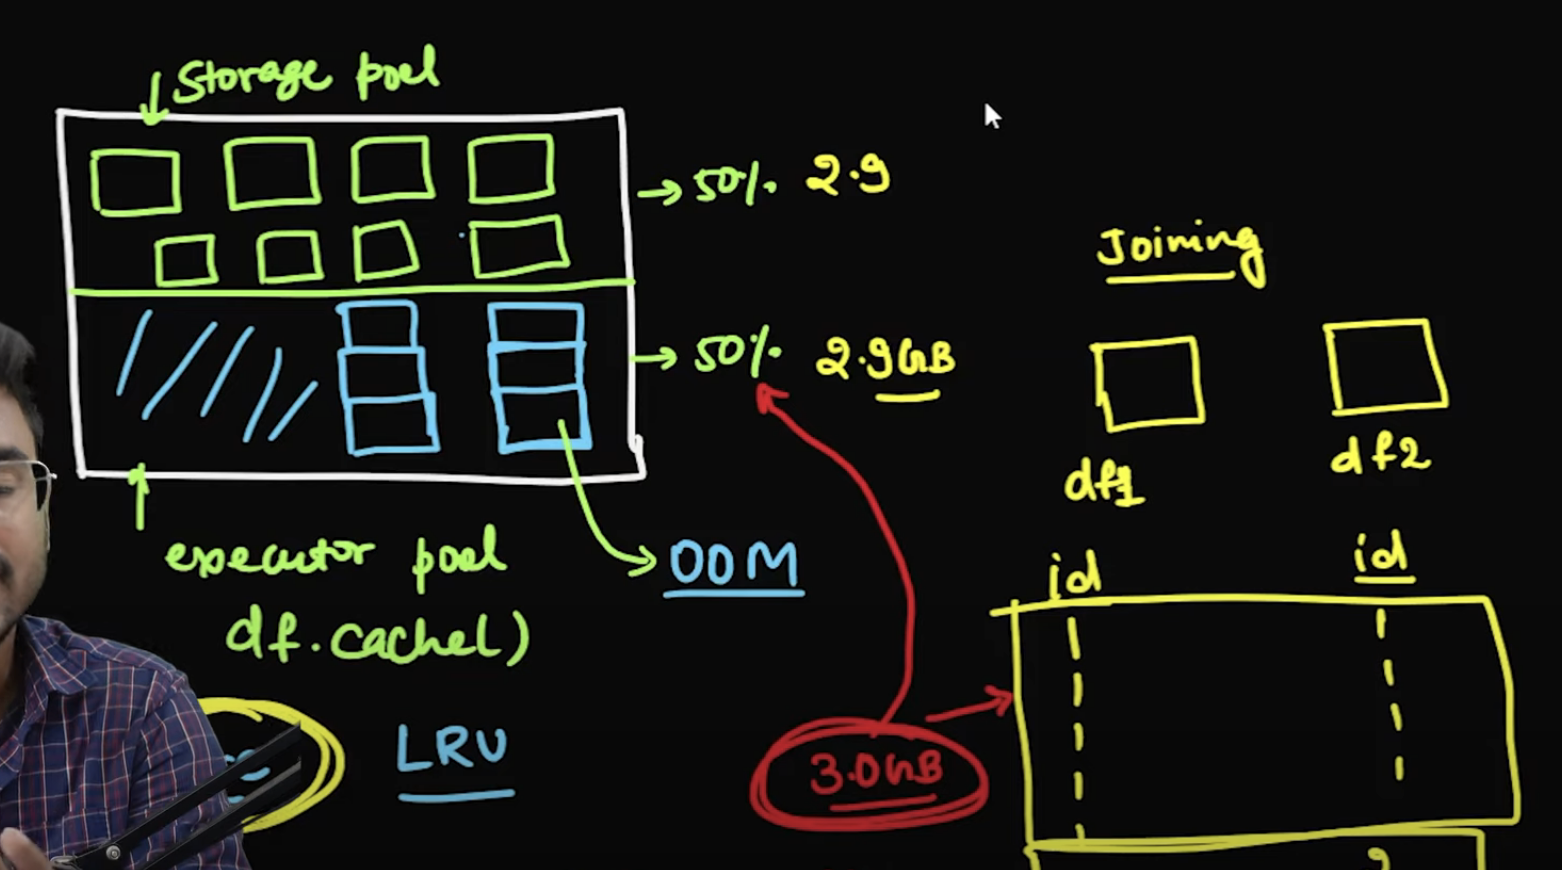 Storage pool
50% 2.9
50% 2.9GB
executor pool
df.cache()
OOM
LRU
3.0GB
Joining
df1
df2
id
id